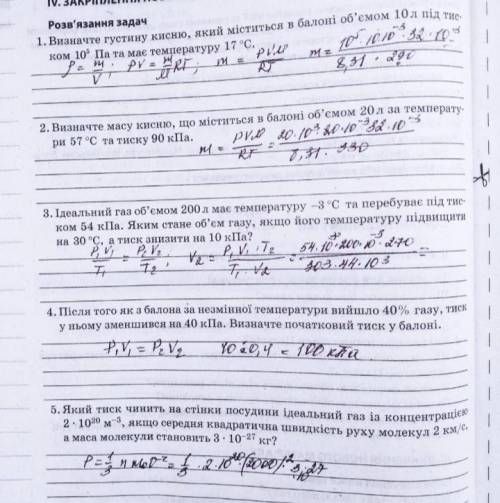 IV. ЗАКРІПЛЕННЯ
Розв'язання задач
1. Визначте густину кисню, який міститься в балоні об'ємом 10 л під тис-
ком 10⁵ Па та має температуру 17 °С.
ρ = m/V; pV = m/M RT; m = pVM/RT m = 10⁵·10·10⁻³·32·10⁻³/8,31·290
2. Визначте масу кисню, що міститься в балоні об'ємом 20 л за температу-
ри 57 °С та тиску 90 кПа.
m = pVM/RT = 20·10³·20·10⁻³32·10⁻³/8,31·330
3. Ідеальний газ об'ємом 200 л має температуру –3 °С та перебуває під тис-
ком 54 кПа. Яким стане об'єм газу, якщо його температуру підвищити
на 30 °С, а тиск знизити на 10 кПа?
P₁V₁/T₁ = P₂V₂/T₂; V₂ = P₁V₁·T₂/T₁·V₂ = 54·10³·200·10⁻³·270/303·44·10³ =
4. Після того як з балона за незмінної температури вийшло 40% газу, тиск
у ньому зменшився на 40 кПа. Визначте початковий тиск у балоні.
P₁V₁ = P₂V₂ 40:0,4 = 100 кПа
5. Який тиск чинить на стінки посудини ідеальний газ із концентрацією
2 · 10²⁰ м⁻³, якщо середня квадратична швидкість руху молекул 2 км/с,
а маса молекули становить 3 · 10⁻²⁷ кг?
P = 1/3 n m₀ υ² = 1/3 · 2·10²⁰·(2000)²·3·10⁻²⁷